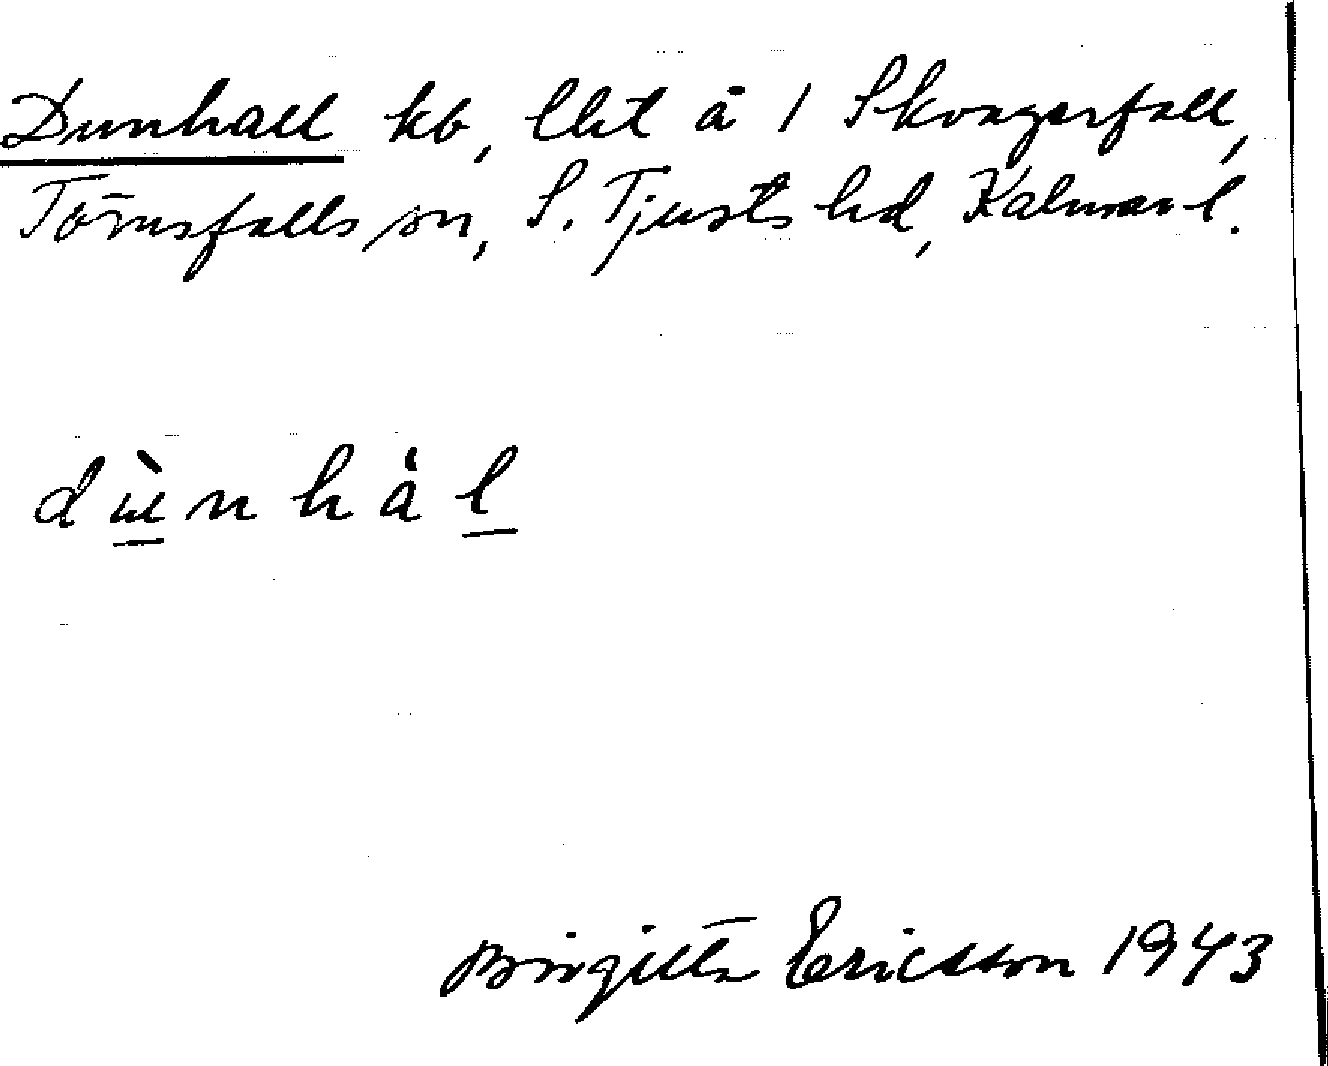 Dunhall kb, lht å 1 Skvagerfall,
Törnsfalls sn, S. Tjusts hd, Kalmar l.
dùnhàl
Birgitta Ericsson 1943